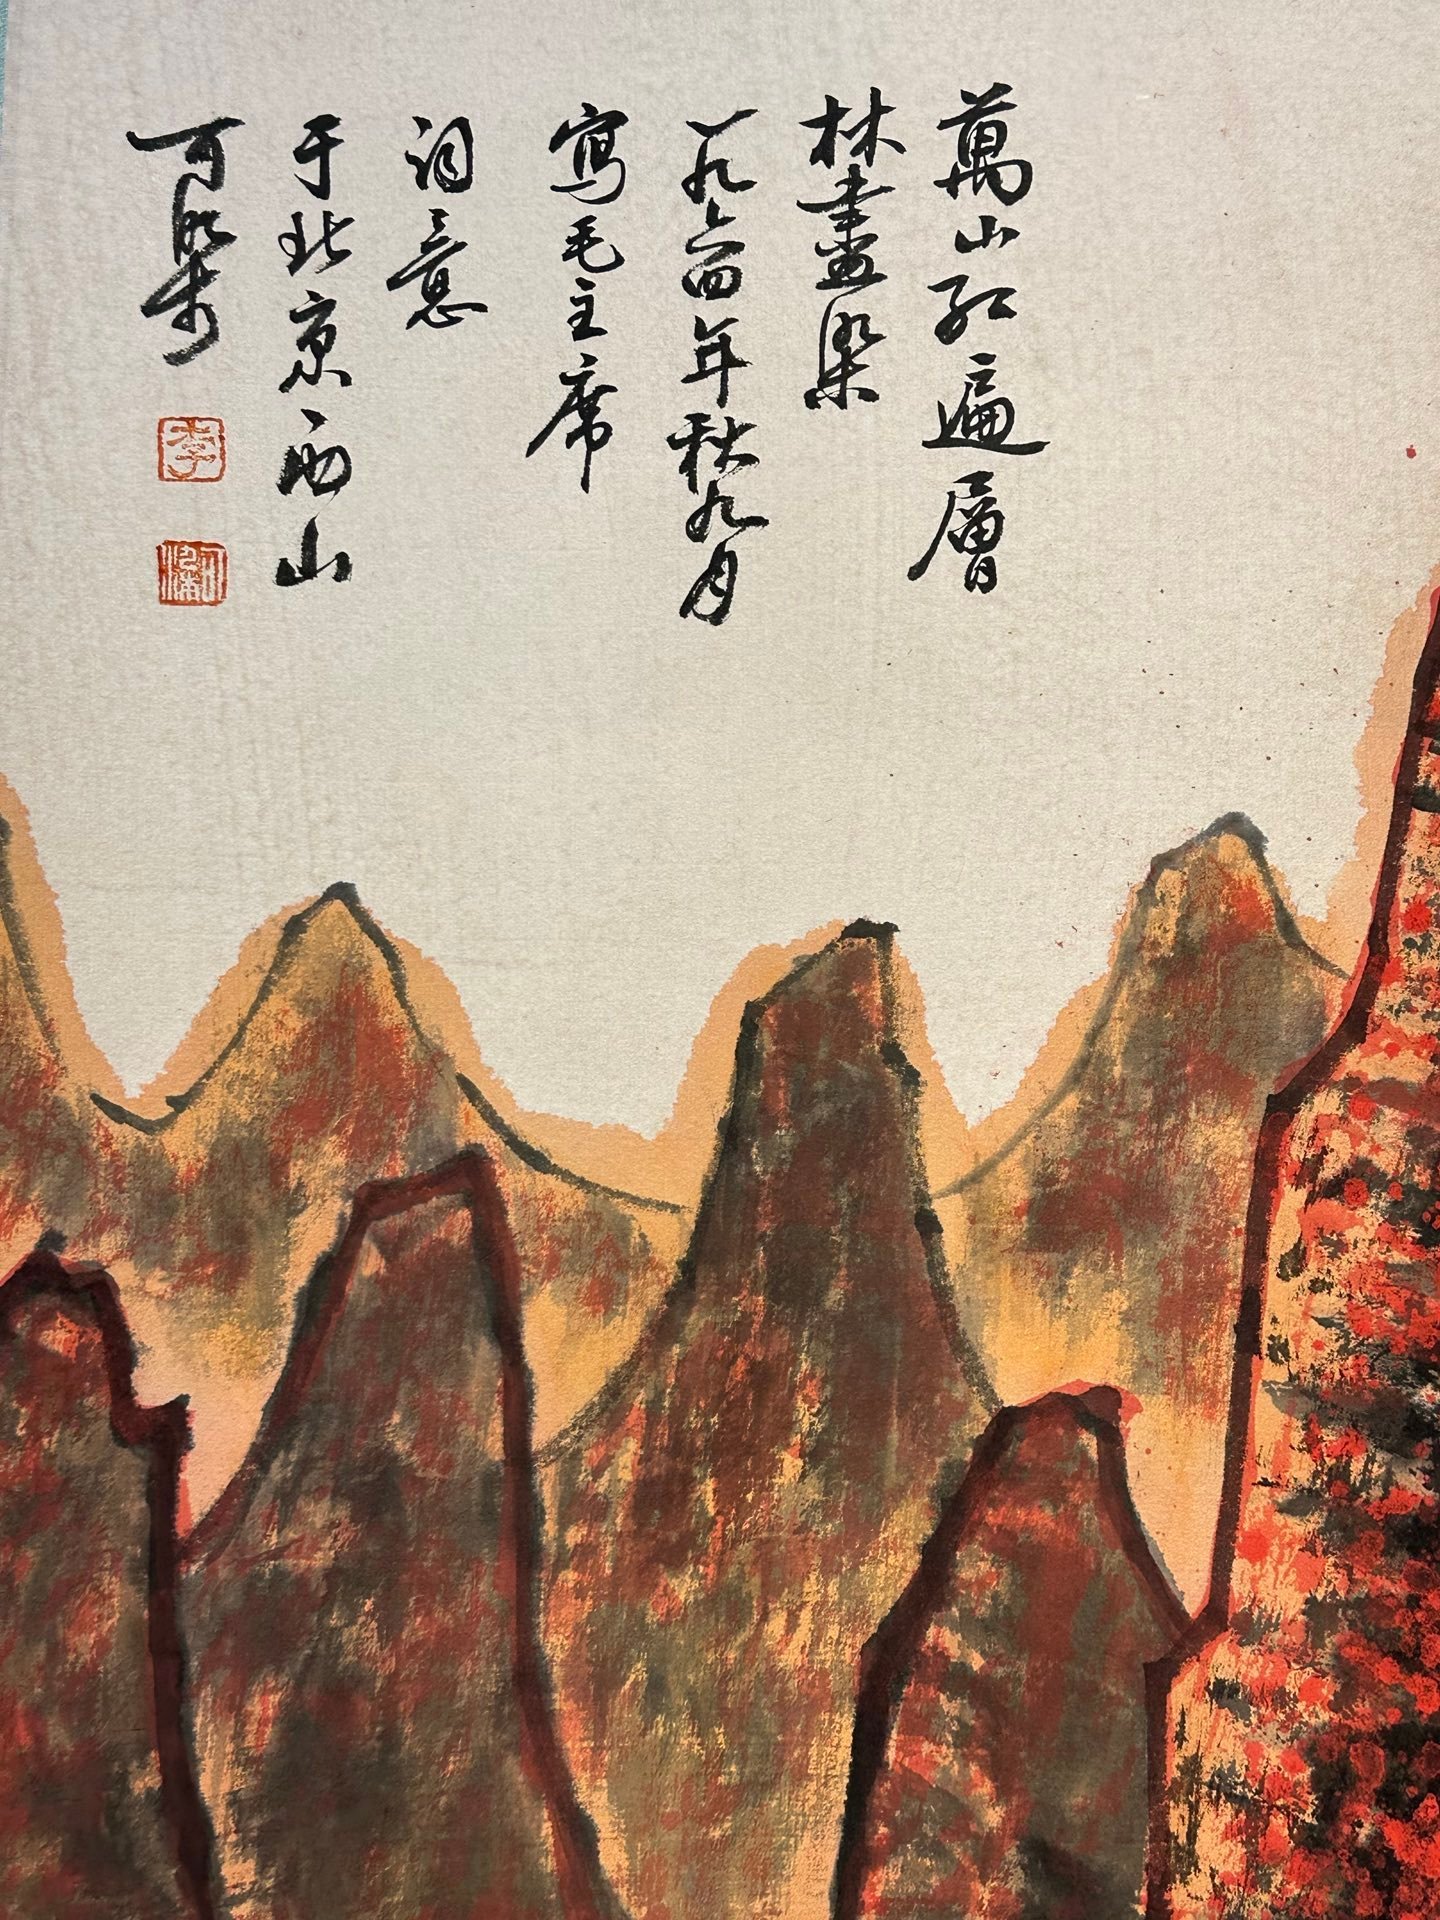 萬山红遍層
林盡染
一九六四年秋九月
寫毛主席
词意
于北京西山
可染
李
可染